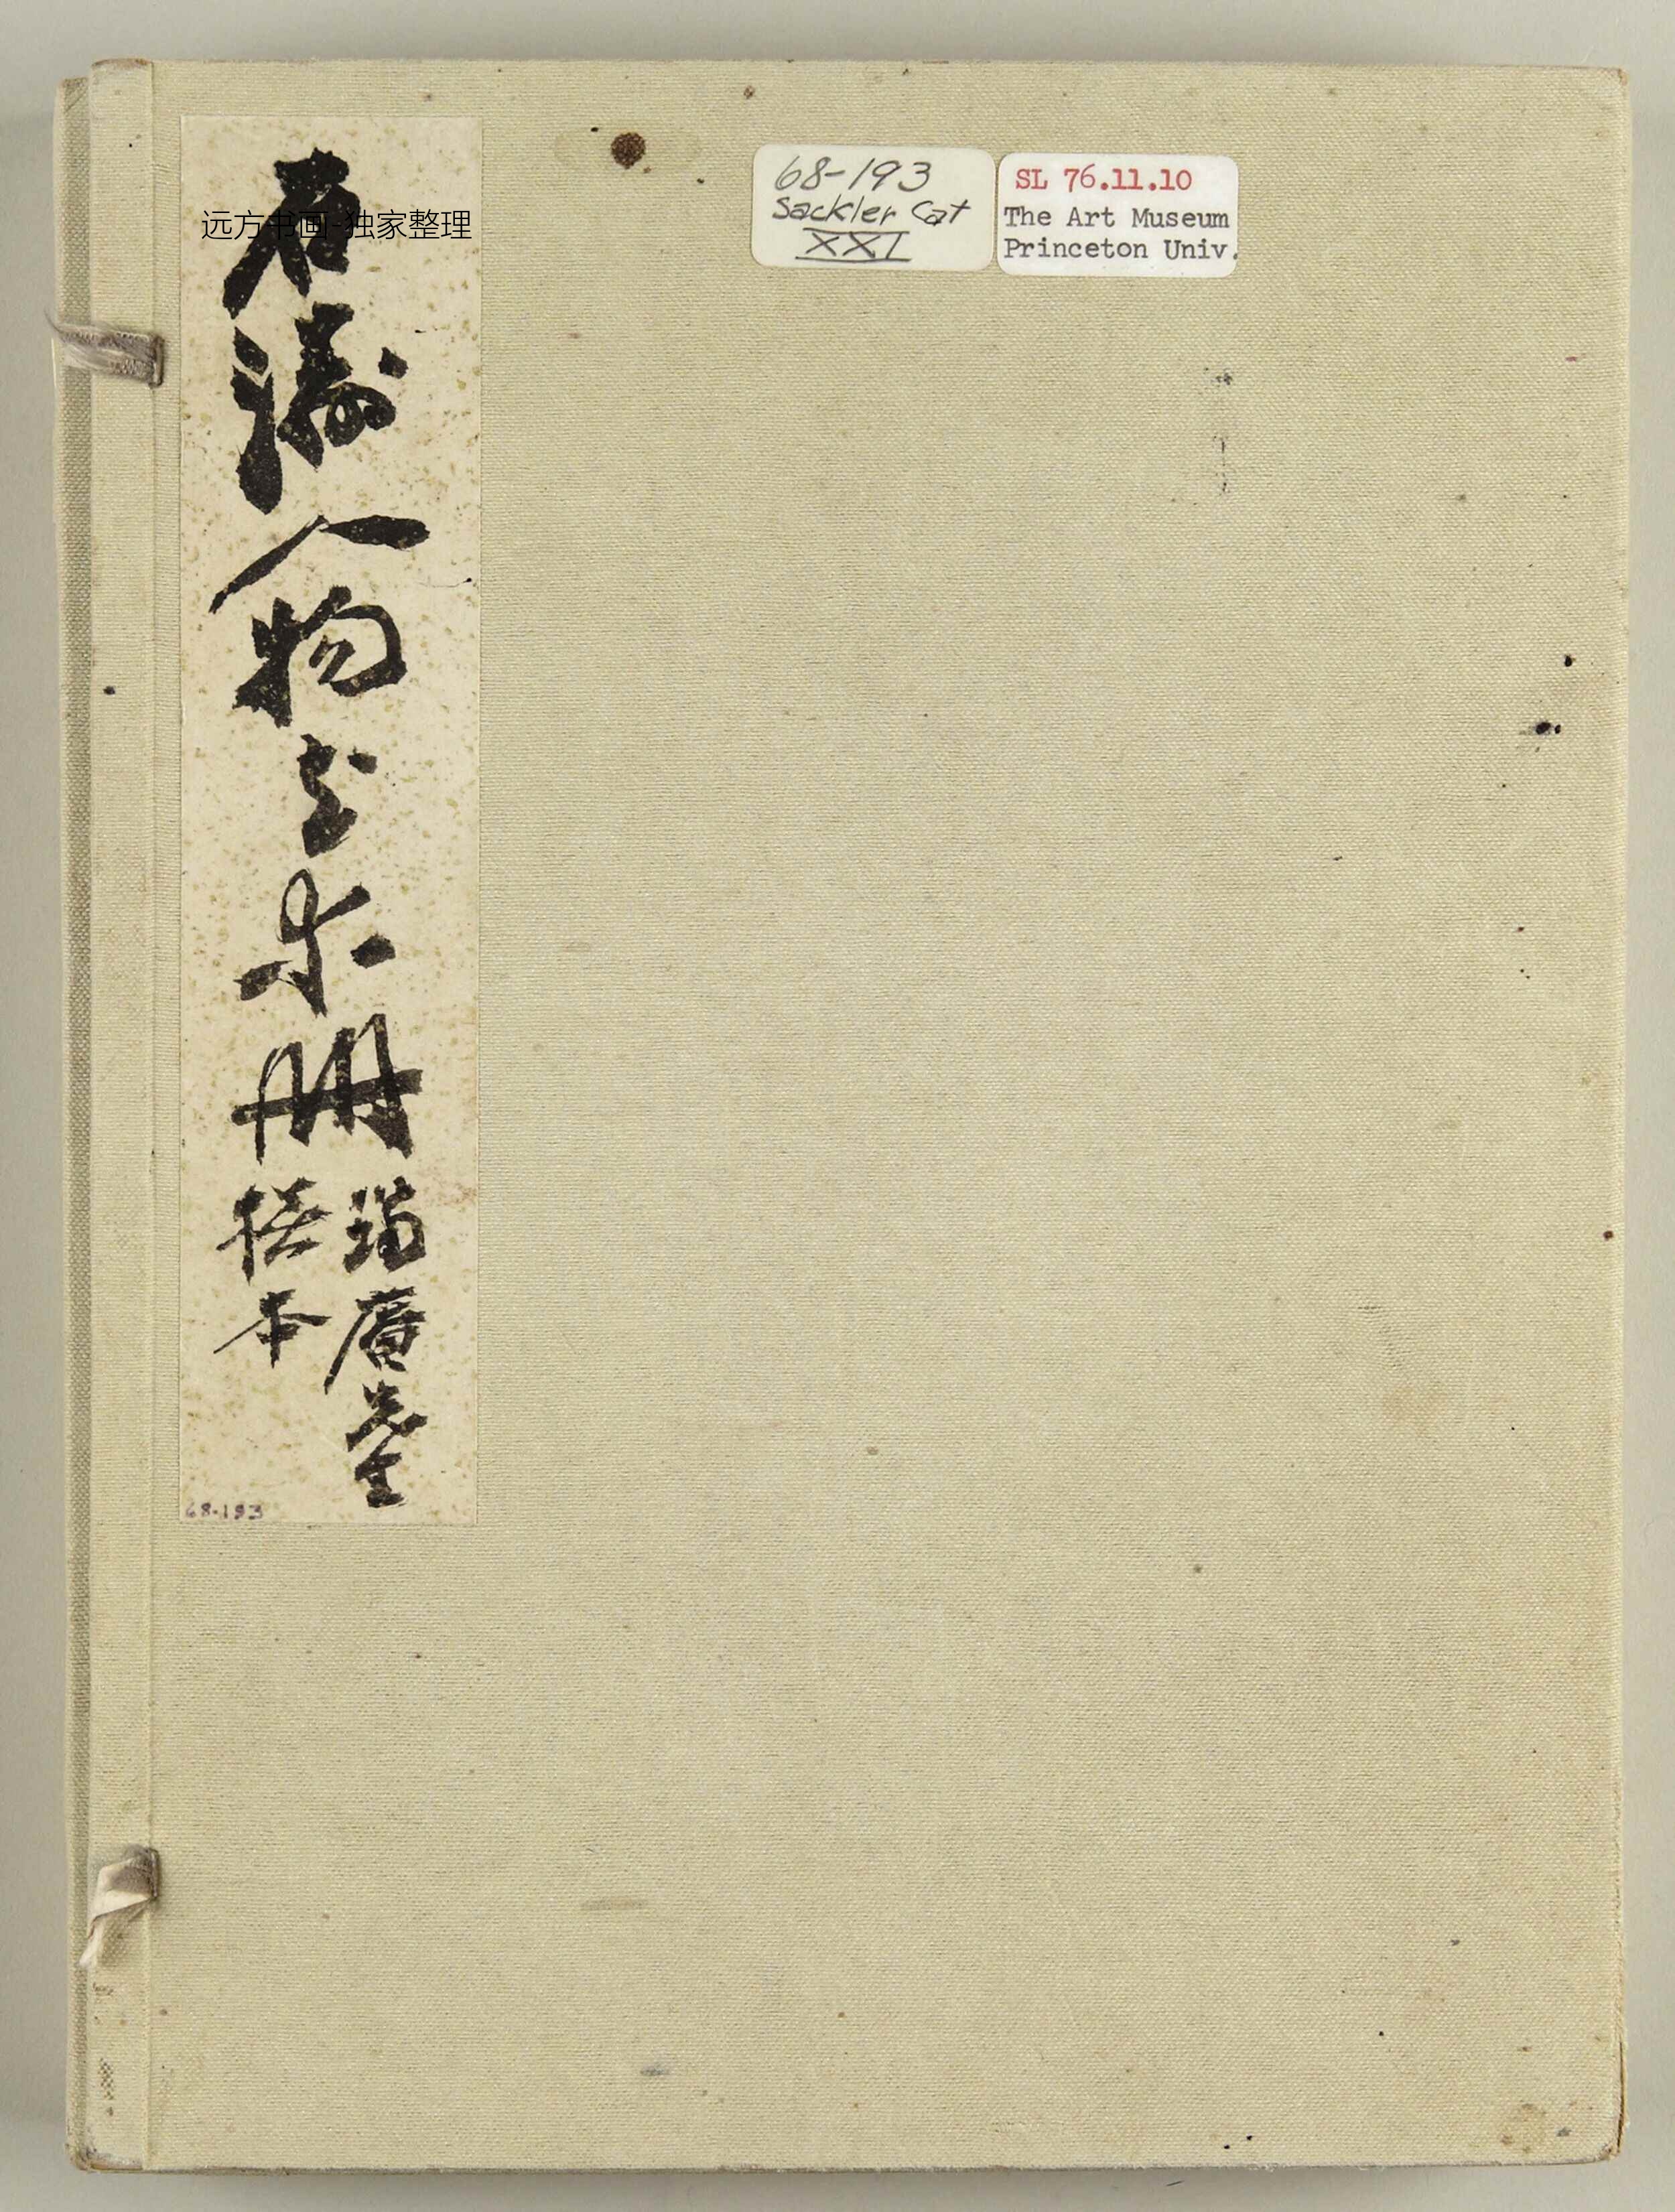 远方书画-独家整理
石濤人物花卉冊
68-193
68-193
Sackler Cat
XXI
SL 76.11.10
The Art Museum
Princeton Univ.